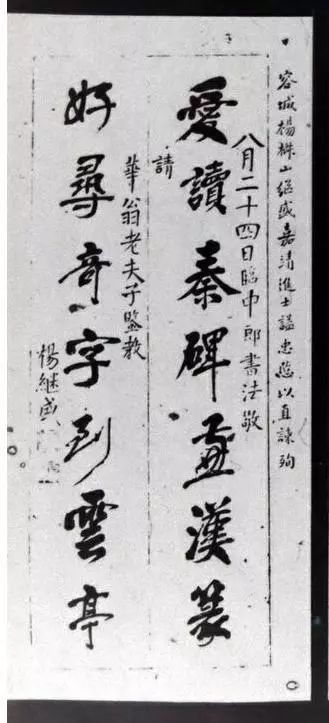 容城楊椒山继盛嘉清進士謚忠愍以直諫殉
八月二十四日臨中郎書法敬
愛讀秦碑漢篆
請
華翁老夫子監教
好尋奇字到雲亭
楊継盛